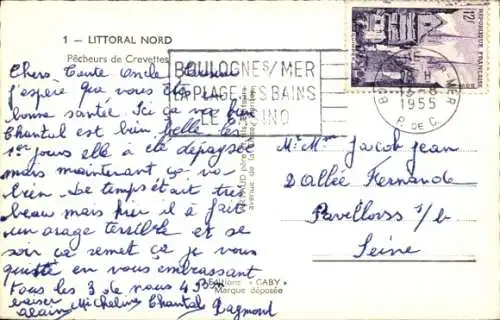 1 – LITTORAL NORD
Pêcheurs de Crevettes
BOULOGNE S/MER
LA PLAGE LES BAINS
LE CASINO
12F
REPUBLIQUE FRANÇAISE
1955
P. DE C.
Chers Tente Oncle
j'espere que vous êtes
bonne santée. Ici ça va bien
Chantal est bien belle les
1er jours elle à été depaysé
mais maintenant ça va
bien. Le temps était très
beau mais hier il à fait
un orage terrible et se
soir ça remet ça je vous
quitte en vous embrassant
tous les 3 de nous 4
baiser
alain Micheline Chantal Raymond
Mr Mme Jacob Jean
2 allée Fernande
Pavillons s/b
Seine
Editions "GABY"
Marque déposée